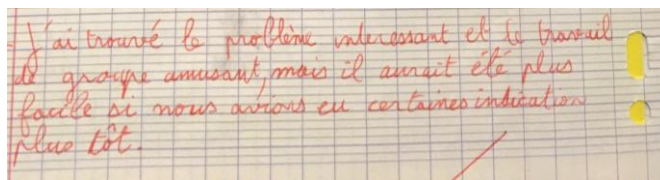 J'ai trouvé le problème interessant et le travail
de groupe amusant, mais il aurait été plus
facile si nous avions eu certaines indication
plus tôt.